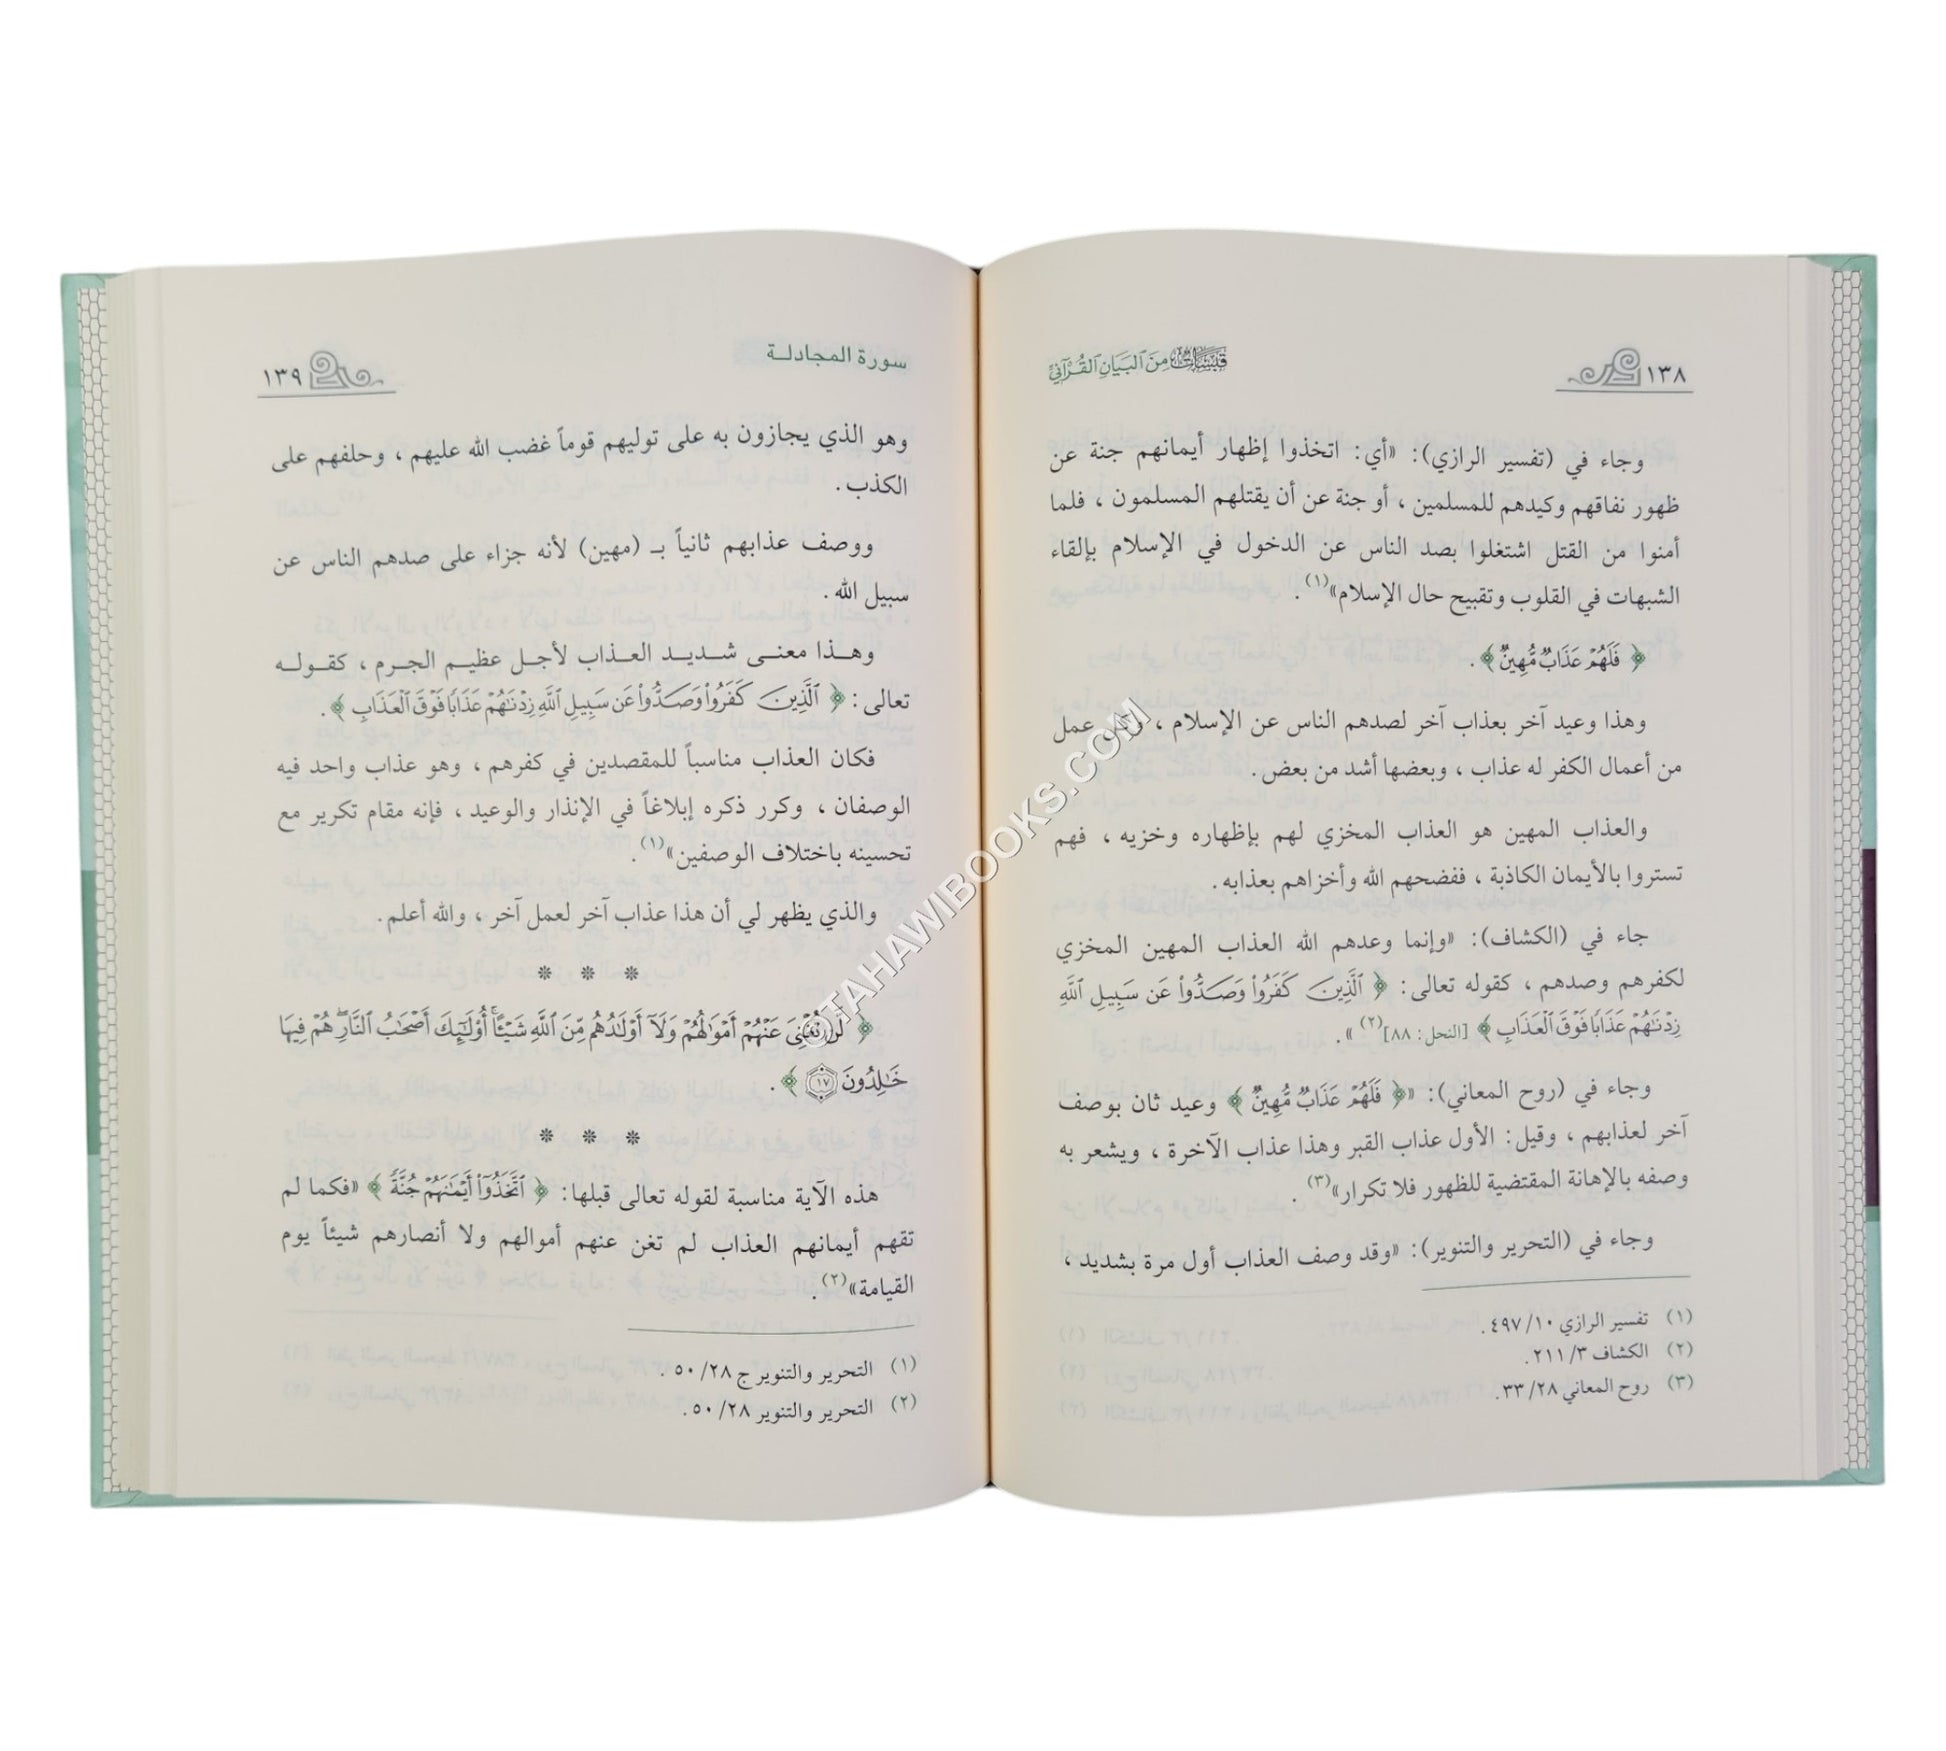 ١٣٨
قبسات من البيان القرآني
وجاء في (تفسير الرازي): «أي: اتخذوا إظهار أيمانهم جنة عن
ظهور نفاقهم وكيدهم للمسلمين ، أو جنة عن أن يقتلهم المسلمون ، فلما
أمنوا من القتل اشتغلوا بصد الناس عن الدخول في الإسلام بإلقاء
الشبهات في القلوب وتقبيح حال الإسلام»(١) .
﴿ فَلَهُمْ عَذَابٌ مُّهِينٌ ﴾ .
وهذا وعيد آخر بعذاب آخر لصدهم الناس عن الإسلام ، وكل عمل
من أعمال الكفر له عذاب ، وبعضها أشد من بعض.
والعذاب المهين هو العذاب المخزي لهم بإظهاره وخزيه ، فهم
تستروا بالأيمان الكاذبة ، ففضحهم الله وأخزاهم بعذابه.
جاء في (الكشاف): «وإنما وعدهم الله العذاب المهين المخزي
لكفرهم وصدهم ، كقوله تعالى: ﴿ ٱلَّذِينَ كَفَرُوا۟ وَصَدُّوا۟ عَن سَبِيلِ ٱللَّهِ
زِدْنَٰهُمْ عَذَابًا فَوْقَ ٱلْعَذَابِ ﴾ [النحل: ٨٨](٢)» .
وجاء في (روح المعاني): «﴿ فَلَهُمْ عَذَابٌ مُّهِينٌ ﴾ وعيد ثان بوصف
آخر لعذابهم ، وقيل: الأول عذاب القبر وهذا عذاب الآخرة ، ويشعر به
وصفه بالإهانة المقتضية للظهور فلا تكرار»(٣) .
وجاء في (التحرير والتنوير): «وقد وصف العذاب أول مرة بشديد ،
(١) تفسير الرازي ١٠/ ٤٩٧.
(٢) الكشاف ٣/ ٢١١.
(٣) روح المعاني ٢٨/ ٣٣.
سورة المجادلـة
١٣٩
وهو الذي يجازون به على توليهم قوماً غضب الله عليهم ، وحلفهم على
الكذب .
ووصف عذابهم ثانياً بـ (مهين) لأنه جزاء على صدهم الناس عن
سبيل الله .
وهـذا معنـى شـديـد العـذاب لأجـل عظيـم الجـرم ، كقـولـه
تعالى: ﴿ ٱلَّذِينَ كَفَرُوا۟ وَصَدُّوا۟ عَن سَبِيلِ ٱللَّهِ زِدْنَٰهُمْ عَذَابًا فَوْقَ ٱلْعَذَابِ ﴾ .
فكان العذاب مناسباً للمقصدين في كفرهم ، وهو عذاب واحد فيه
الوصفان ، وكرر ذكره إبلاغاً في الإنذار والوعيد ، فإنه مقام تكرير مع
تحسينه باختلاف الوصفين»(١) .
والذي يظهر لي أن هذا عذاب آخر لعمل آخر ، والله أعلم.
* * *
﴿ لَّن تُغْنِىَ عَنْهُمْ أَمْوَٰلُهُمْ وَلَآ أَوْلَٰدُهُم مِّنَ ٱللَّهِ شَيْـًٔا ۚ أُو۟لَٰٓئِكَ أَصْحَٰبُ ٱلنَّارِ ۖ هُمْ فِيهَا
خَٰلِدُونَ ١٧ ﴾ .
* * *
هذه الآية مناسبة لقوله تعالى قبلها: ﴿ ٱتَّخَذُوٓا۟ أَيْمَٰنَهُمْ جُنَّةً ﴾ «فكما لم
تقهم أيمانهم العذاب لم تغن عنهم أموالهم ولا أنصارهم شيئاً يوم
القيامة»(٢) .
(١) التحرير والتنوير ج ٢٨/ ٥٠ .
(٢) التحرير والتنوير ٢٨/ ٥٠ .
©TAHAWIBOOKS.COM